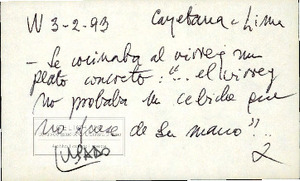 W 3-2-93 Cayetana - Lima
- Se cocinaba al virrey un
plato concreto: "... el virrey
no probaba la cebida que
no fuese de su mano"...
2